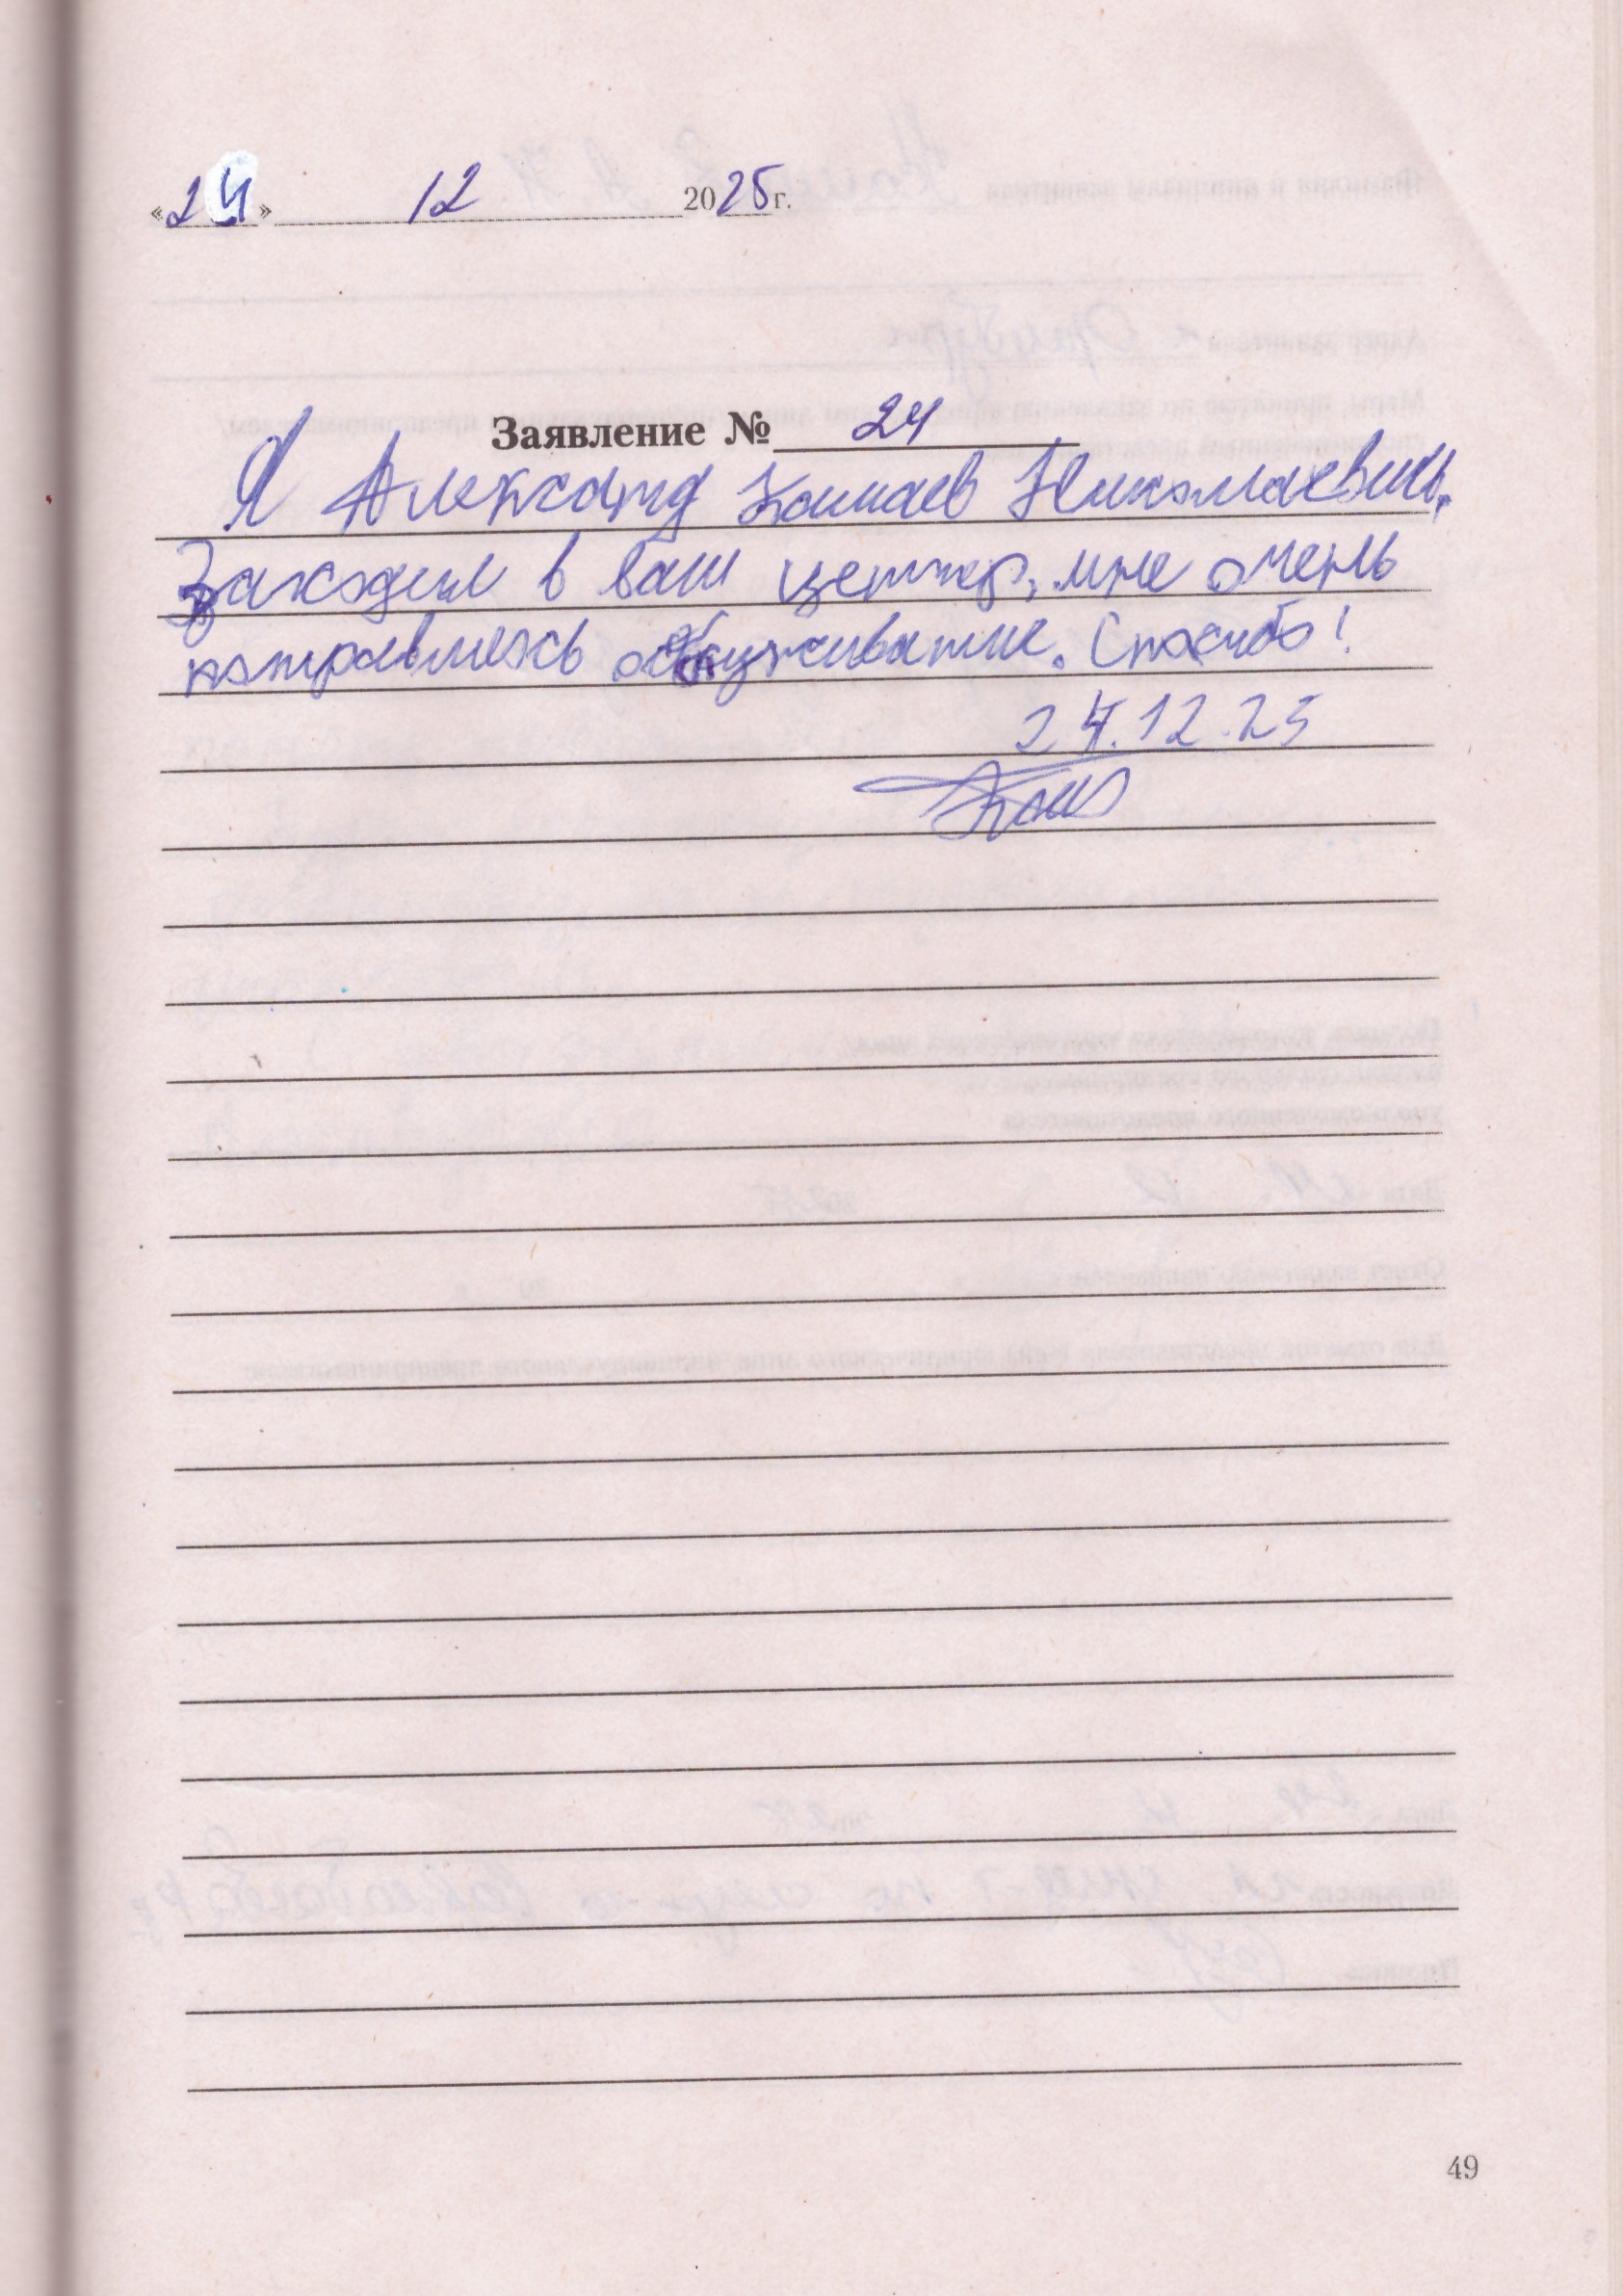 «24» 12 2025 г.
Заявление № 24
Я Александр Кашаев Николаевич.
Заходил в ваш центр, мне очень
понравилось обслуживание. Спасибо!
24.12.25
49